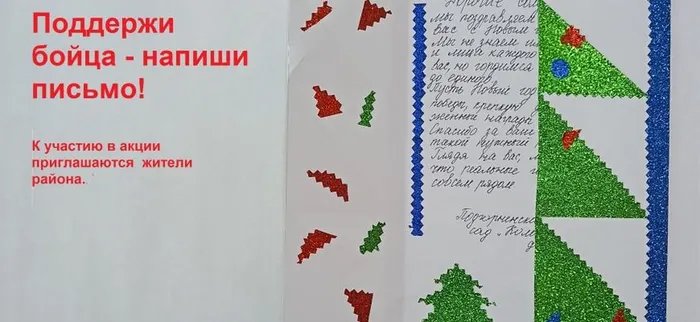 Поддержи
бойца - напиши
письмо!
К участию в акции
приглашаются жители
района.
мы поздравляем
Вас с Новым
Мы не знаем
и лица каждого
вас, но гордимся
до единого
Пусть Новый год
победы, крепкую
награды
Спасибо за Ваш
такой нужный
Глядя на вас,
что реальные
совсем рядом
сад